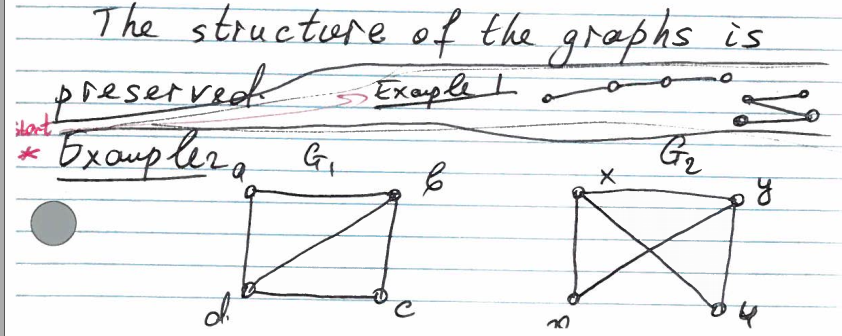 The structure of the graphs is
preserved. Example 1
start
* Example 2 G₁ G₂
a b x y
d c n u